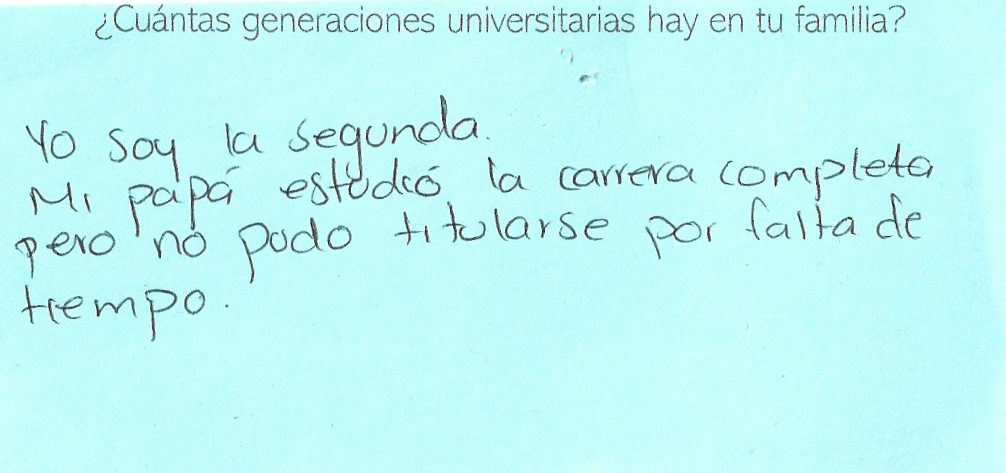 ¿Cuántas generaciones universitarias hay en tu familia?
Yo soy la segunda.
Mi papá estudió la carrera completa
pero no pudo titularse por falta de
tiempo.